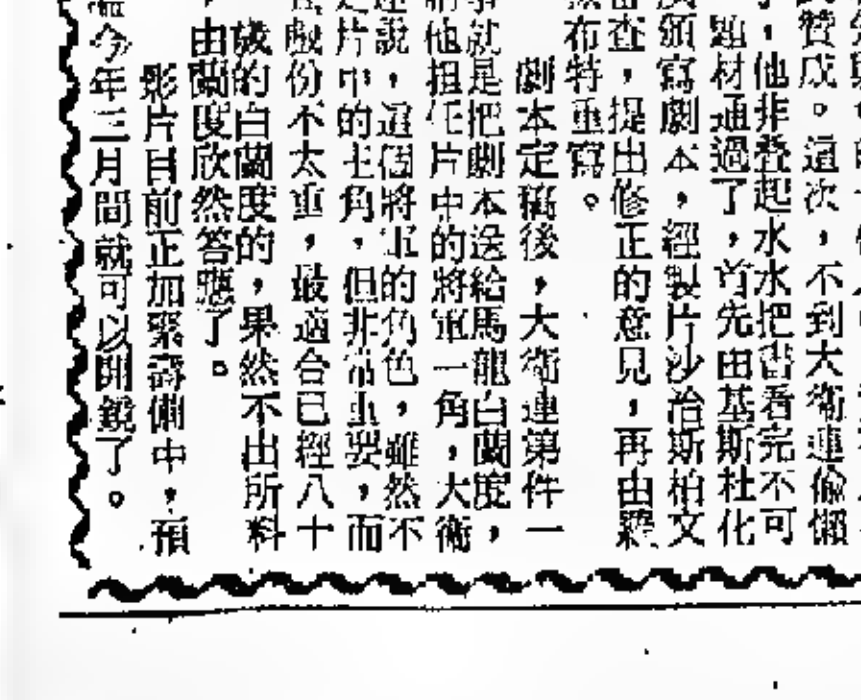 贊成。這次，不到大衛連偷懶
，他非叠起水水把書看完不可
題材通過了，首先由基斯杜化
頒寫劇本，經製片沙治斯柏文
審查，提出修正的意見，再由
布特重寫。
劇本定稿後，大衛連第件一
事就是把劇本送給馬龍白蘭度，
他担任片中的將軍一角，大衛
連說，這個將軍的角色，雖然不
是片中的主角，但非常重要，而
戲份不太重，最適合已經八十
歲的白蘭度的，果然不出所料
，由蘭度欣然答應了。
影片目前正加緊籌備中，預
今年三月間就可以開鏡了。